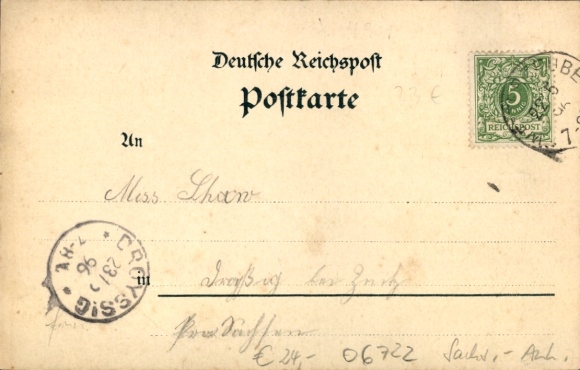 Deutsche Reichspost
Postkarte
5
REICHSPOST
An
Miss Shaw
in Droßig bei Zeitz
Prov Sachsen
DROYSSIG
7-8V
96
€ 24,- 06722 Sachs.- Anh.
23 €